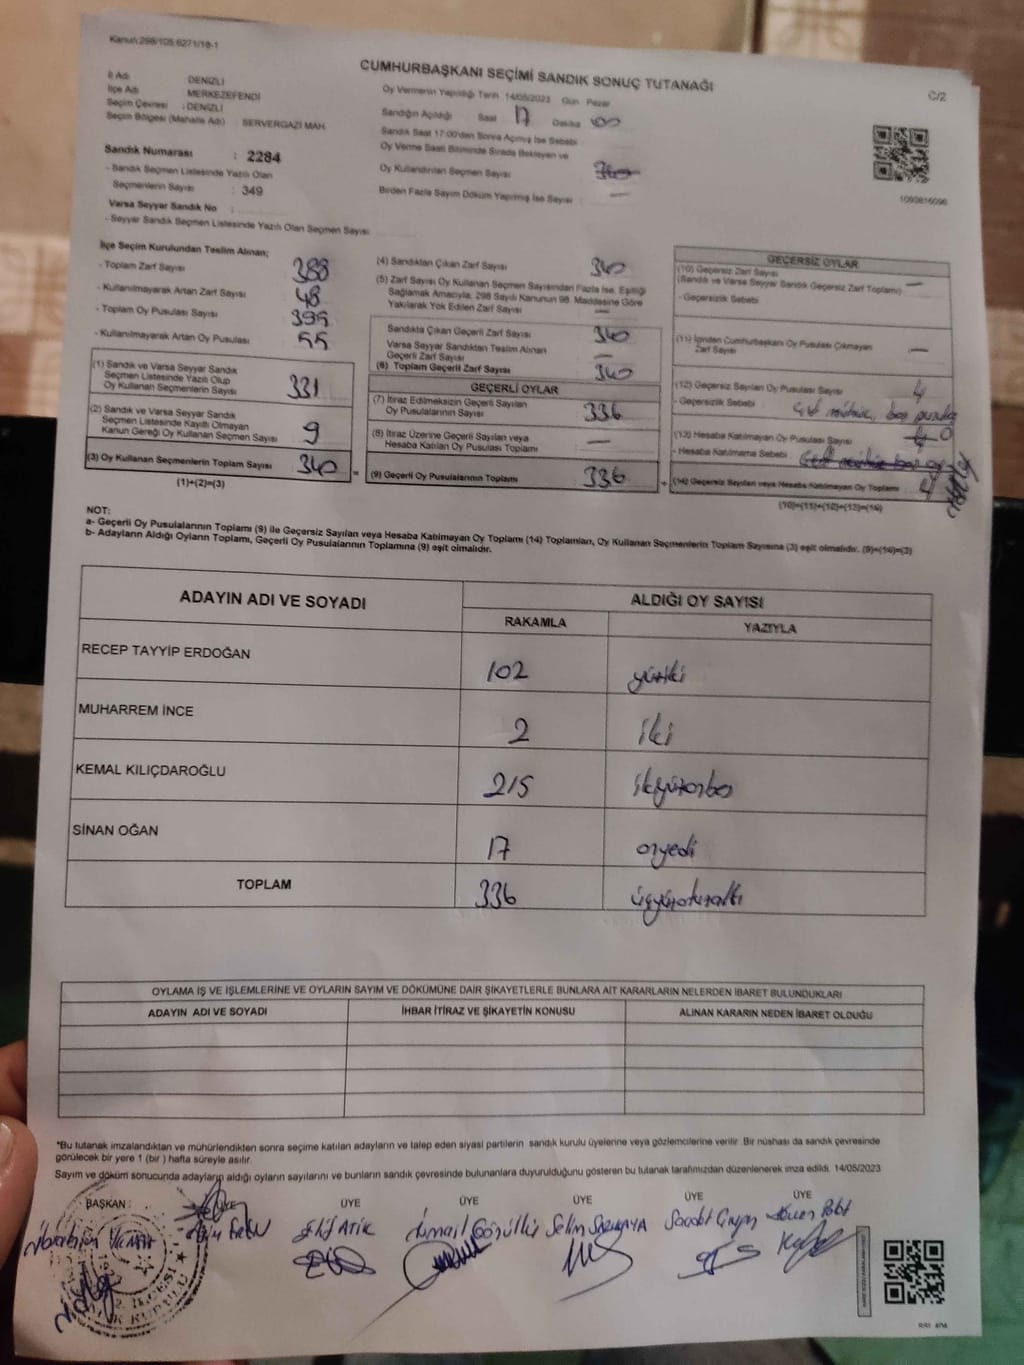 Kanun:298/105;6271/18-1
CUMHURBAŞKANI SEÇİMİ SANDIK SONUÇ TUTANAĞI
C/2
İl Adı : DENİZLİ
İlçe Adı : MERKEZEFENDİ
Seçim Çevresi : DENİZLİ
Seçim Bölgesi (Mahalle Adı) : SERVERGAZİ MAH.
Sandık Numarası : 2284
- Sandık Seçmen Listesinde Yazılı Olan
Seçmenlerin Sayısı : 349
Varsa Seyyar Sandık No :
- Seyyar Sandık Seçmen Listesinde Yazılı Olan Seçmen Sayısı
Oy Vermenin Yapıldığı Tarih 14/05/2023 Gün Pazar
Sandığın Açıldığı Saat 17 Dakika 00
Sandık Saat 17:00'den Sonra Açılmış İse Sebebi
Oy Verme Saati Bitiminde Sırada Bekleyen ve
Oy Kullandırılan Seçmen Sayısı : 340
Birden Fazla Sayım Döküm Yapılmış İse Sayısı : —
1090816096
İlçe Seçim Kurulundan Teslim Alınan;
- Toplam Zarf Sayısı 388
- Kullanılmayarak Artan Zarf Sayısı 48
- Toplam Oy Pusulası Sayısı 395
- Kullanılmayarak Artan Oy Pusulası 55
(1) Sandık ve Varsa Seyyar Sandık
Seçmen Listesinde Yazılı Olup
Oy Kullanan Seçmenlerin Sayısı 331
(2) Sandık ve Varsa Seyyar Sandık
Seçmen Listesinde Kayıtlı Olmayan
Kanun Gereği Oy Kullanan Seçmen Sayısı 9
(3) Oy Kullanan Seçmenlerin Toplam Sayısı 340
(1)+(2)=(3)
(4) Sandıktan Çıkan Zarf Sayısı 340
(5) Zarf Sayısı Oy Kullanan Seçmen Sayısından Fazla İse, Eşitliği
Sağlamak Amacıyla, 298 Sayılı Kanunun 98. Maddesine Göre
Yakılarak Yok Edilen Zarf Sayısı —
Sandıkta Çıkan Geçerli Zarf Sayısı 340
Varsa Seyyar Sandıktan Teslim Alınan
Geçerli Zarf Sayısı —
(6) Toplam Geçerli Zarf Sayısı 340
GEÇERLİ OYLAR
(7) İtiraz Edilmeksizin Geçerli Sayılan
Oy Pusulalarının Sayısı 336
(8) İtiraz Üzerine Geçerli Sayılan veya
Hesaba Katılan Oy Pusulası Toplamı —
(9) Geçerli Oy Pusulalarının Toplamı 336
GEÇERSİZ OYLAR
(10) Geçersiz Zarf Sayısı
(Sandık ve Varsa Seyyar Sandık Geçersiz Zarf Toplamı) —
- Geçersizlik Sebebi
(11) İçinden Cumhurbaşkanı Oy Pusulası Çıkmayan
Zarf Sayısı —
(12) Geçersiz Sayılan Oy Pusulası Sayısı 4
- Geçersizlik Sebebi : çift mühür, boş pusula
(13) Hesaba Katılmayan Oy Pusulası Sayısı 0
- Hesaba Katılmama Sebebi :
(14) Geçersiz Sayılan veya Hesaba Katılmayan Oy Toplamı : 4
(10)+(11)+(12)+(13)=(14)
NOT:
a- Geçerli Oy Pusulalarının Toplamı (9) ile Geçersiz Sayılan veya Hesaba Katılmayan Oy Toplamı (14) Toplamları, Oy Kullanan Seçmenlerin Toplam Sayısına (3) eşit olmalıdır. (9)+(14)=(3)
b- Adayların Aldığı Oyların Toplamı, Geçerli Oy Pusulalarının Toplamına (9) eşit olmalıdır.
ADAYIN ADI VE SOYADI ALDIĞI OY SAYISI
RAKAMLA YAZIYLA
RECEP TAYYİP ERDOĞAN 102 yüziki
MUHARREM İNCE 2 iki
KEMAL KILIÇDAROĞLU 215 ikiyüzonbeş
SİNAN OĞAN 17 onyedi
TOPLAM 336 üçyüzotuzaltı
OYLAMA İŞ VE İŞLEMLERİNE VE OYLARIN SAYIM VE DÖKÜMÜNE DAİR ŞİKAYETLERLE BUNLARA AİT KARARLARIN NELERDEN İBARET BULUNDUKLARI
ADAYIN ADI VE SOYADI İHBAR İTİRAZ VE ŞİKAYETİN KONUSU ALINAN KARARIN NEDEN İBARET OLDUĞU
*Bu tutanak imzalandıktan ve mühürlendikten sonra seçime katılan adayların ve talep eden siyasi partilerin sandık kurulu üyelerine veya gözlemcilerine verilir. Bir nüshası da sandık çevresinde
görülecek bir yere 1 (bir ) hafta süreyle asılır.
Sayım ve döküm sonucunda adayların aldığı oyların sayılarını ve bunların sandık çevresinde bulunanlara duyurulduğunu gösteren bu tutanak tarafımızdan düzenlenerek imza edildi. 14/05/2023
BAŞKAN : ÜYE ÜYE ÜYE ÜYE ÜYE ÜYE
Elif Atik İsmail Gönüllü Selim